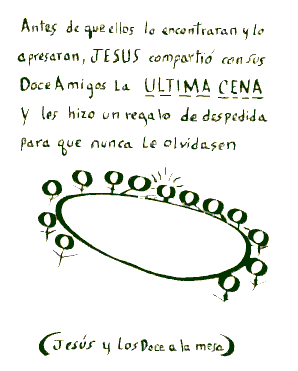 Antes de que ellos lo encontraran y lo
apresaran, JESUS compartió con sus
Doce Amigos La ULTIMA CENA
Y les hizo un regalo de despedida
para que nunca Le olvidasen
(Jesús y Los Doce a la mesa)